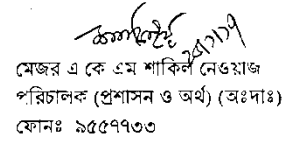 মেজর এ কে এম শাকিল নেওয়াজ
পরিচালক (প্রশাসন ও অর্থ) (অঃদাঃ)
ফোনঃ ৯৫৫৭৭৩৩